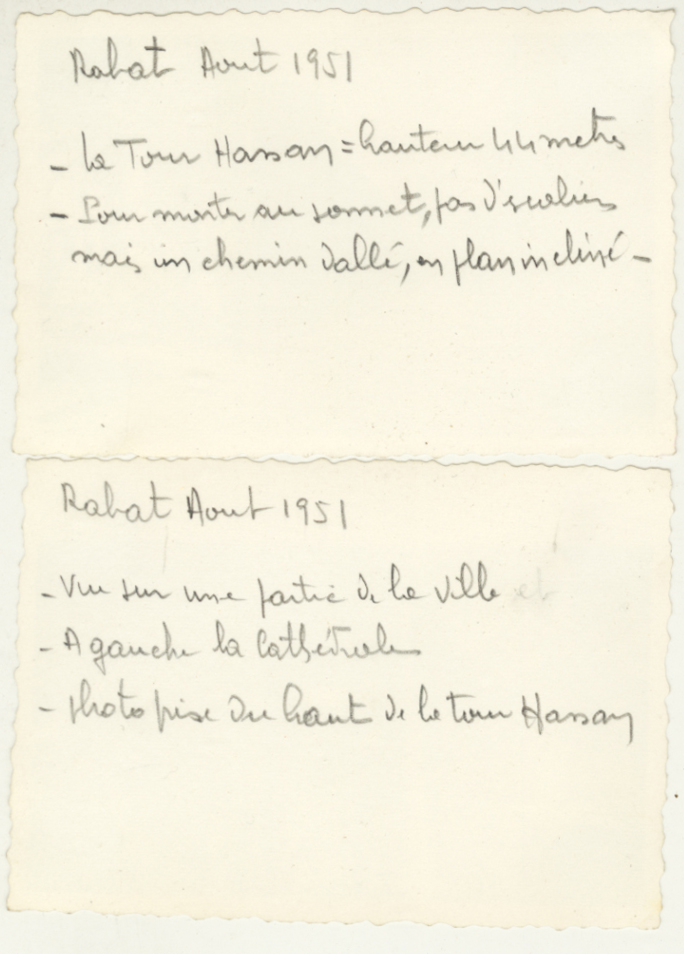 Rabat Aout 1951
- La Tour Hassan = hauteur 44 metres
- Pour monter au sommet, pas d'escaliers
mais un chemin dallé, en plan incliné -
Rabat Aout 1951
- Vue sur une partie de la ville
- A gauche la Cathédrale
- photo prise du haut de la tour Hassan